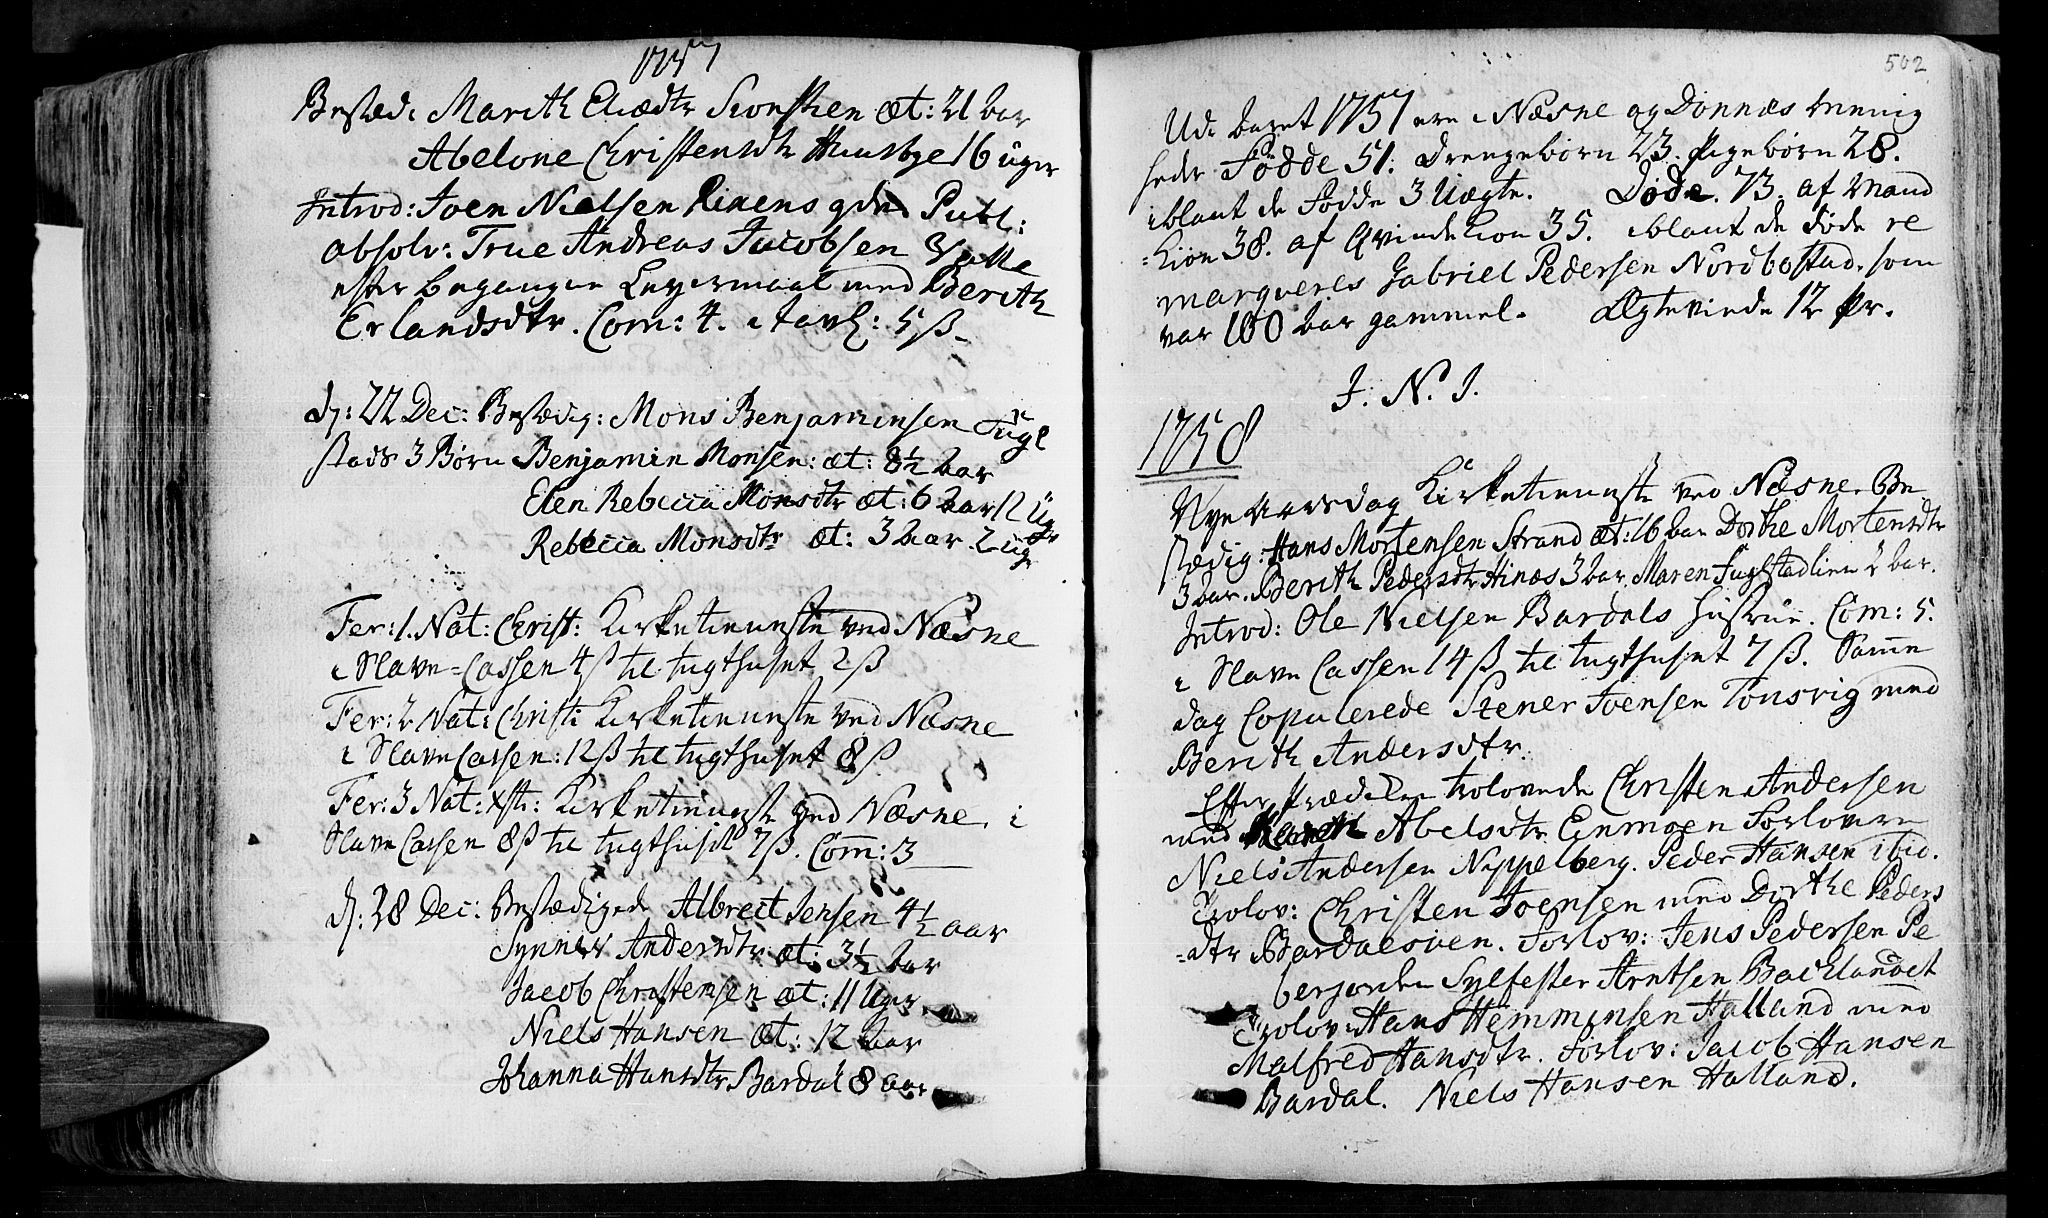 1757
Bested: Marith Eliædtr Sionskien æt: 21 aar
Abelone Christensdtr Huusbye 16 Uger
Introd: Joen Nielsen Rixens qde Publ:
absolv: True Andreas Jacobsen
efter begangen Leyermaal med Berith
Erlandsdtr. Com: 4. i tavl: 5 ß
d: 22 Dec: Bestædig: Mons Benjaminsen Fugl
stads 3 Børn Benjamin Monsen: æt: 8½ aar
Elen Rebecca Monsdtr æt: 6 aar 12 Ug
Rebecca Monsdtr æt: 3 aar 2 Ugr
Fer: 1. Nat: Christ: Kirketienneste ved Næsne
i Slave-Cassen 4 ß til tugthuset 2 ß
Fer: 2 Nat: Christi Kirketienneste ved Næsne
i Slave Cassen: 12 ß til tugthuset 8 ß
Fer: 3 Nat: Xsti: Kirketienneste ved Næsne. i
Slave Cassen 8 ß til tugthuset 7 ß. Com: 3
d: 28 Dec: Bestædigede Albrect Jensen 4½ aar
Synnev Andersdtr æt: 3½ aar
Jacob Christensen æt: 11 Uger
Niels Hansen æt: 12 aar
Johanna Hansdtr Bardal 8 aar
502
Udi aaret 1757 ere i Næsne og Dønnæs Menig
heder Fødde 51: Drengebørn 23. Pigebørn 28.
iblant de Fødde 3 Uægte. Døde. 73. af Mand
-kion 38. af Qvindekion 35. iblant de døde re
marqveres Gabriel Pedersen Nordbostad. som
var 100 aar gammel. Ægteviede 12 Pr.
J. N. J.
1758
Nye Aarsdag Kirketienneste ved Næsne. Be
stædig: Hans Mortensen Strand æt: 16 aar Dorthe Mortensdtr
3 aar. Berith Pedersdtr Hinæs 3 aar. Maren Fuglstadlien 2 aar.
Introd: Ole Nielsen Bardals Hustrue. Com: 5.
i Slave Cassen 14 ß til tugthuset 7 ß. Samme
dag Copulerede Stener Joensen Tonsvig med
Berith Andersdtr.
Efter Prædiken trolovede Christen Andersen
med Abelsdtr Enmoen Forlovere
Niels Andersen Nippelberg. Peder Hansen ibid.
Trolov: Christen Joensen med Dorthe Peders
-dtr Bardalsøen. Forlov: Jens Pedersen Pe
berjorden Sylfester Arntsen Backlandet
Trolov: Hans Hemminsen Halland med
Malfred Hansdtr. Forlov: Jacob Hansen
Bardal. Niels Hansen Halland.